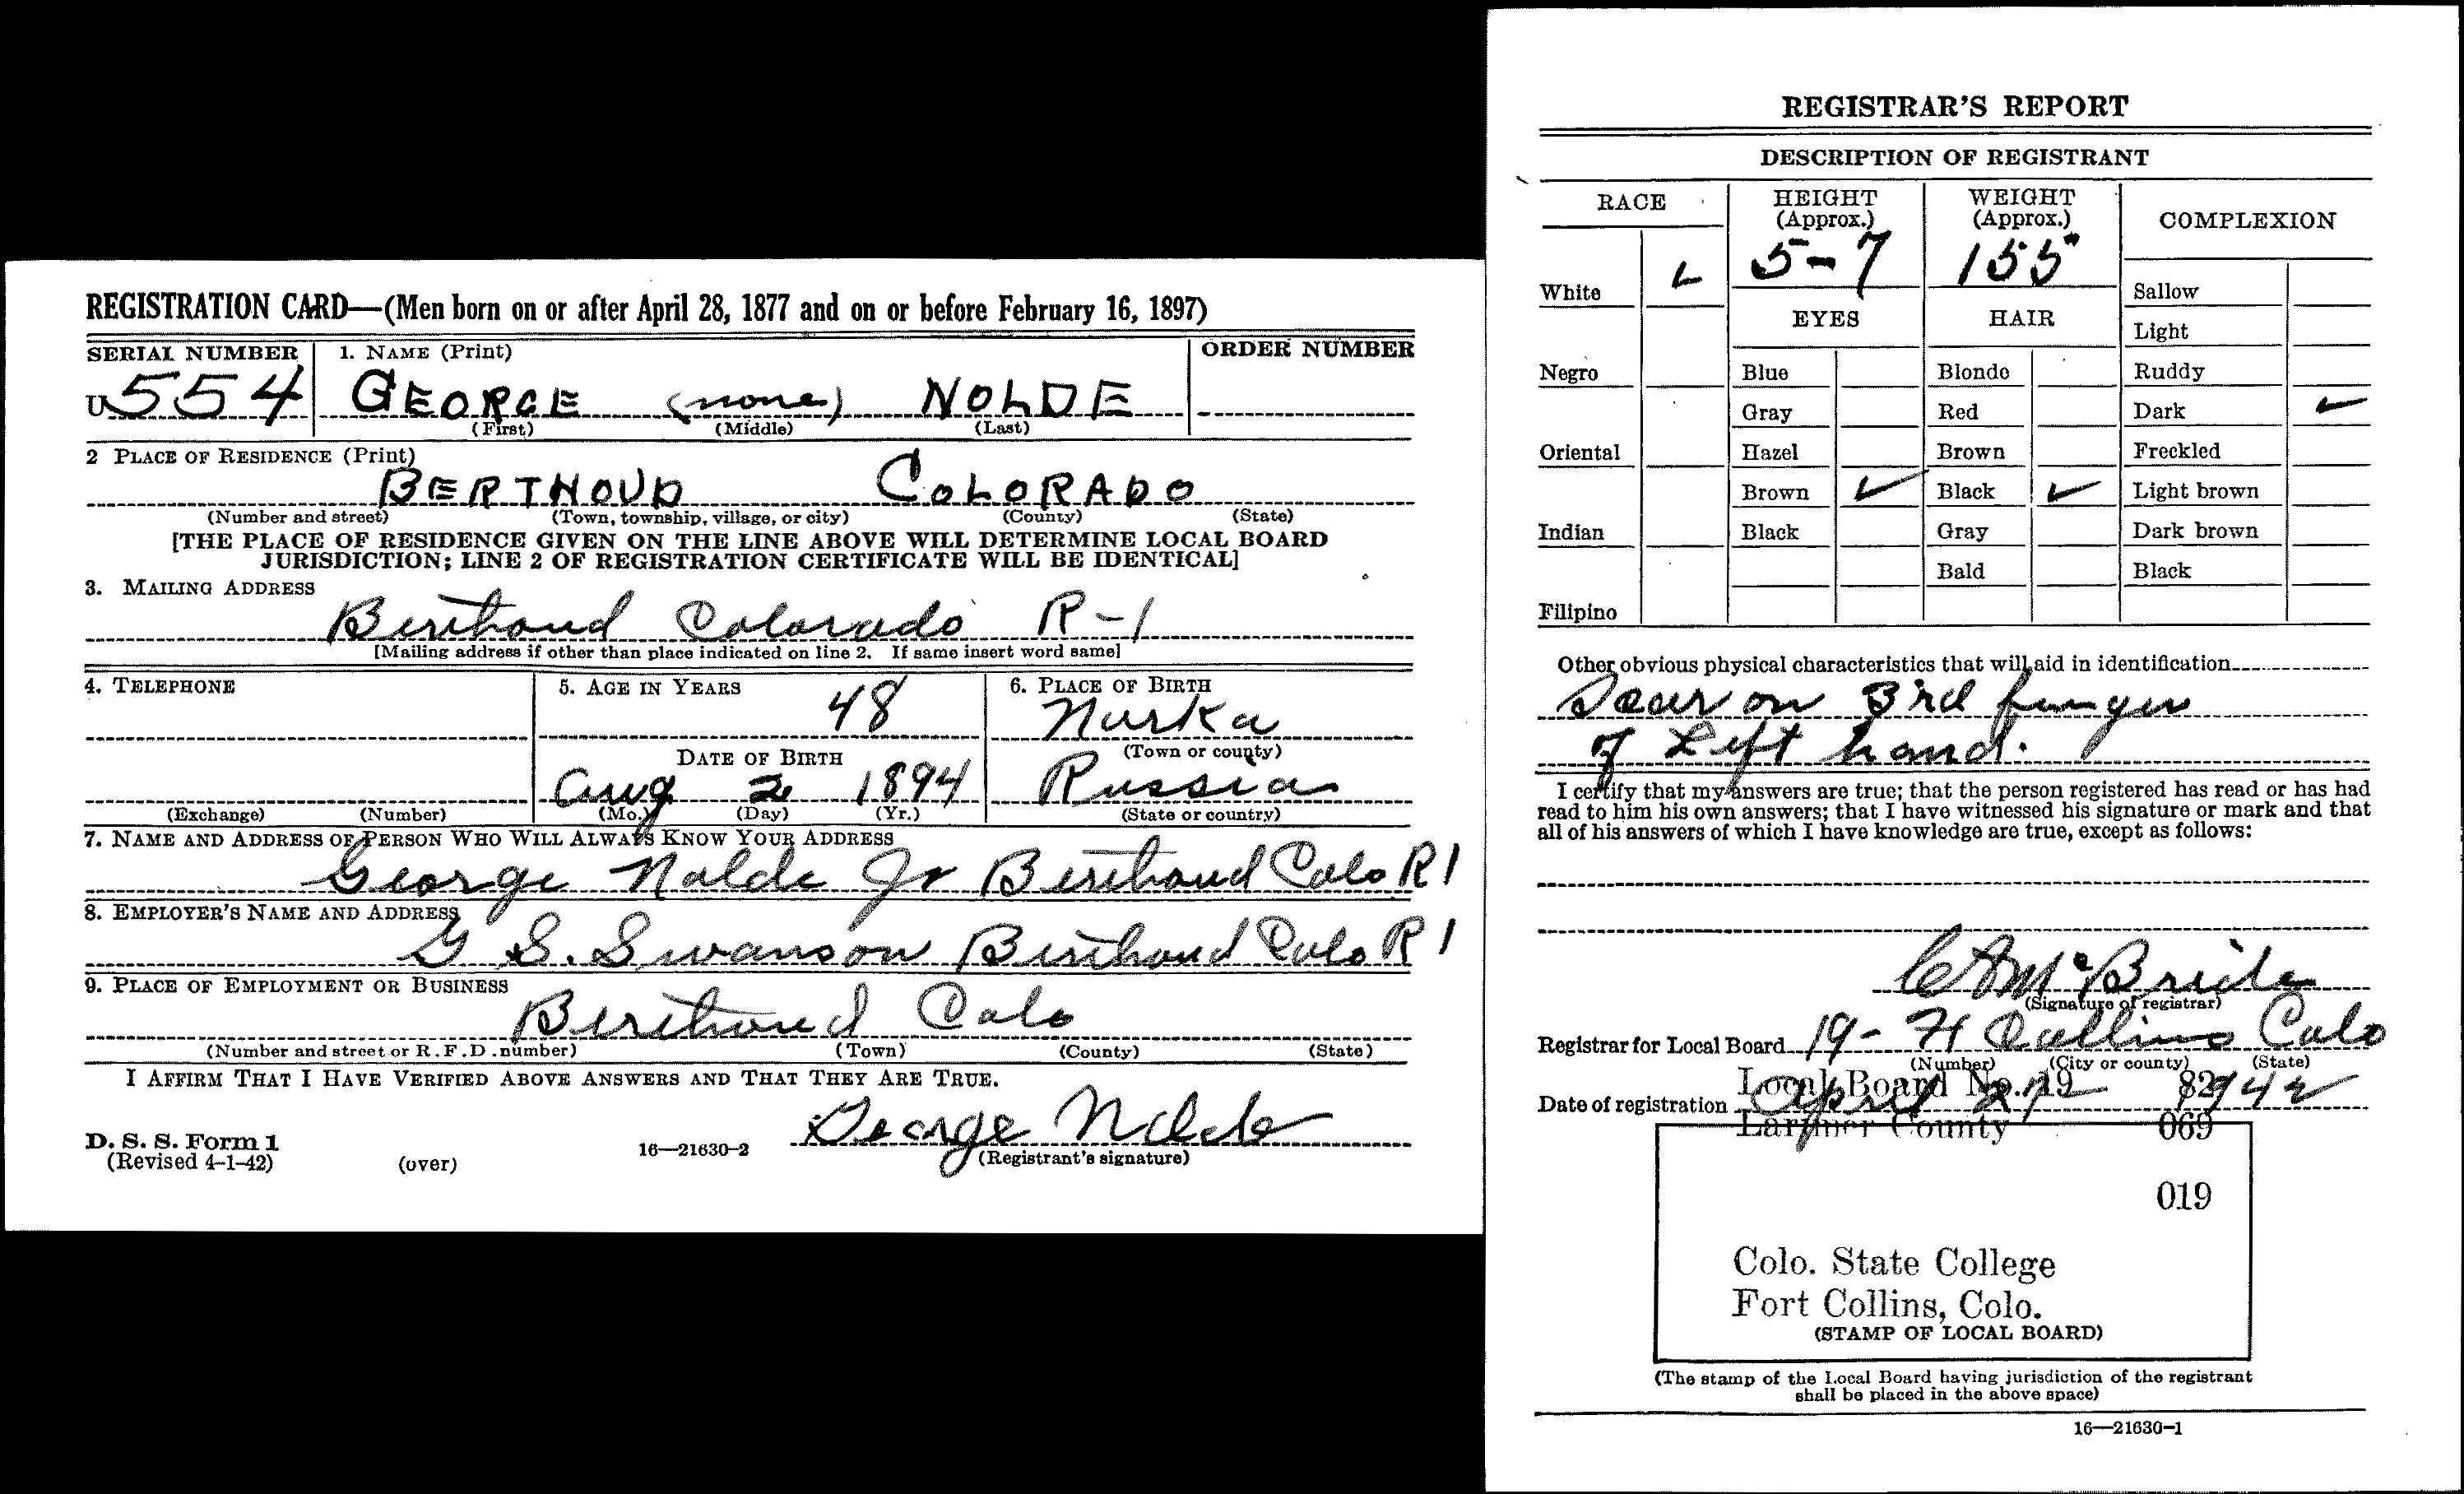 REGISTRATION CARD—(Men born on or after April 28, 1877 and on or before February 16, 1897)
SERIAL NUMBER 1. NAME (Print) ORDER NUMBER
U 554 GEORGE (none) NOLDE
(First) (Middle) (Last)
2 PLACE OF RESIDENCE (Print)
BERTHOUD COLORADO
(Number and street) (Town, township, village, or city) (County) (State)
[THE PLACE OF RESIDENCE GIVEN ON THE LINE ABOVE WILL DETERMINE LOCAL BOARD
JURISDICTION; LINE 2 OF REGISTRATION CERTIFICATE WILL BE IDENTICAL]
3. MAILING ADDRESS
Berthoud Colorado R-1
[Mailing address if other than place indicated on line 2. If same insert word same]
4. TELEPHONE 5. AGE IN YEARS 6. PLACE OF BIRTH
48 Norka
DATE OF BIRTH (Town or county)
Aug 2 1894 Russia
(Exchange) (Number) (Mo.) (Day) (Yr.) (State or country)
7. NAME AND ADDRESS OF PERSON WHO WILL ALWAYS KNOW YOUR ADDRESS
George Nolde Jr Berthoud Colo R1
8. EMPLOYER'S NAME AND ADDRESS
G S. Swanson Berthoud Colo R1
9. PLACE OF EMPLOYMENT OR BUSINESS
Berthoud Colo
(Number and street or R.F.D. number) (Town) (County) (State)
I AFFIRM THAT I HAVE VERIFIED ABOVE ANSWERS AND THAT THEY ARE TRUE.
George Nolde
D. S. S. Form 1
(Revised 4-1-42) (over) 16—21630-2 (Registrant's signature)
REGISTRAR'S REPORT
DESCRIPTION OF REGISTRANT
RACE HEIGHT (Approx.) WEIGHT (Approx.) COMPLEXION
White ✓ 5-7 155 Sallow
EYES HAIR Light
Negro Blue Blonde Ruddy
Gray Red Dark ✓
Oriental Hazel Brown Freckled
Brown ✓ Black ✓ Light brown
Indian Black Gray Dark brown
Bald Black
Filipino
Other obvious physical characteristics that will aid in identification
Scar on 3rd finger
of Left hand.
I certify that my answers are true; that the person registered has read or has had
read to him his own answers; that I have witnessed his signature or mark and that
all of his answers of which I have knowledge are true, except as follows:
C A McBride
(Signature of registrar)
Registrar for Local Board 19- Ft Collins Colo
(Number) (City or county) (State)
Local Board No. 19 82
Date of registration April 27 1942
Larimer County 069
019
Colo. State College
Fort Collins, Colo.
(STAMP OF LOCAL BOARD)
(The stamp of the Local Board having jurisdiction of the registrant
shall be placed in the above space)
16—21630-1